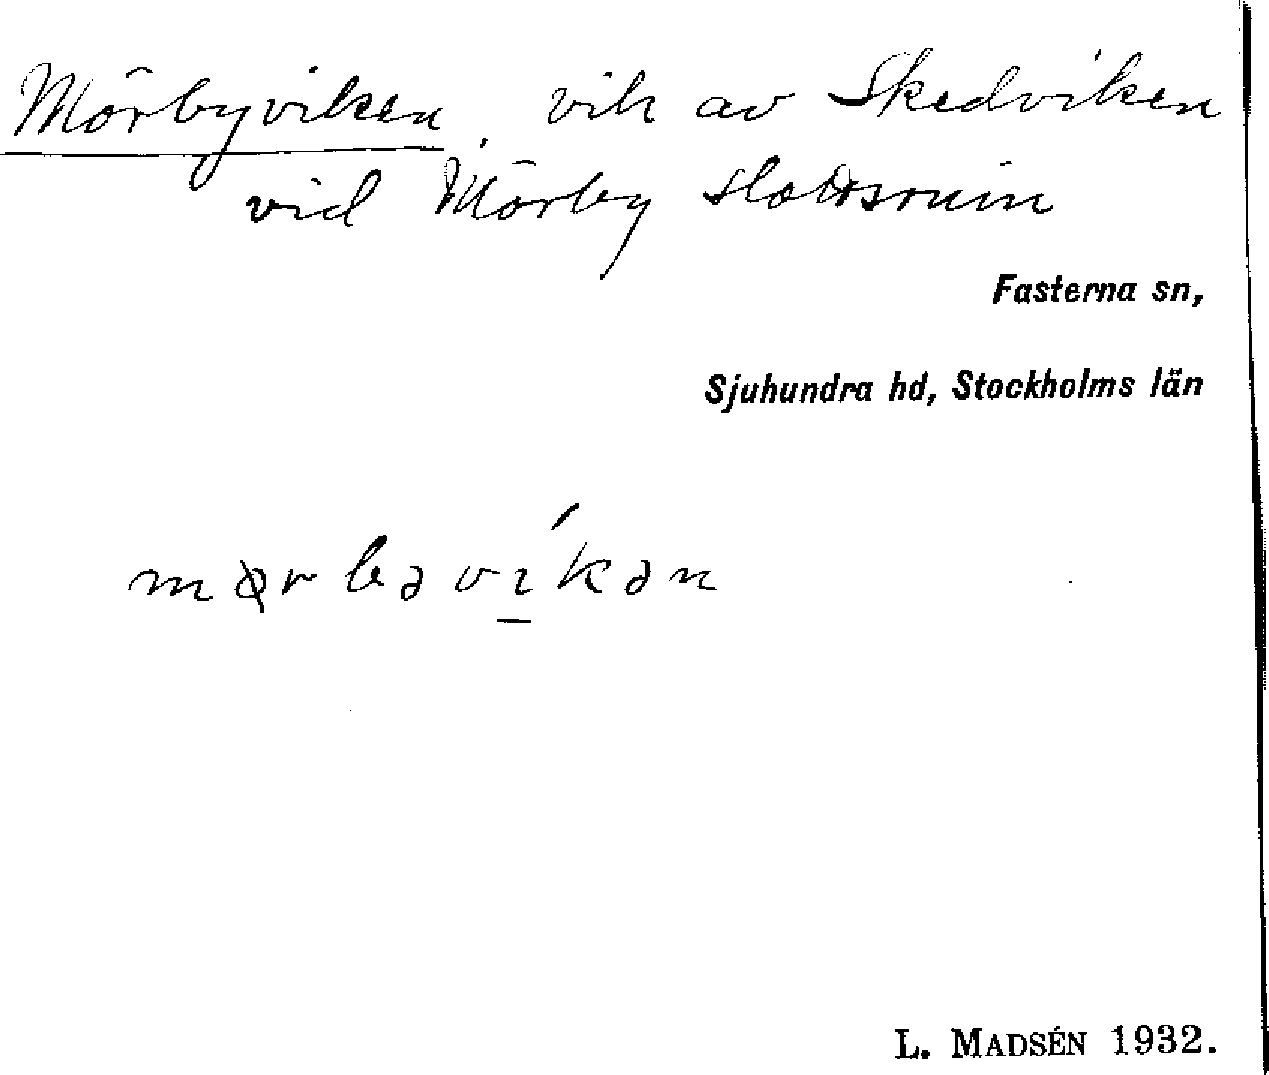 Mörbyviken, vik av Skedviken
vid Mörby slottsruin
Fasterna sn,
Sjuhundra hd, Stockholms län
mørbəvı̲́kən
L. MADSÉN 1932.